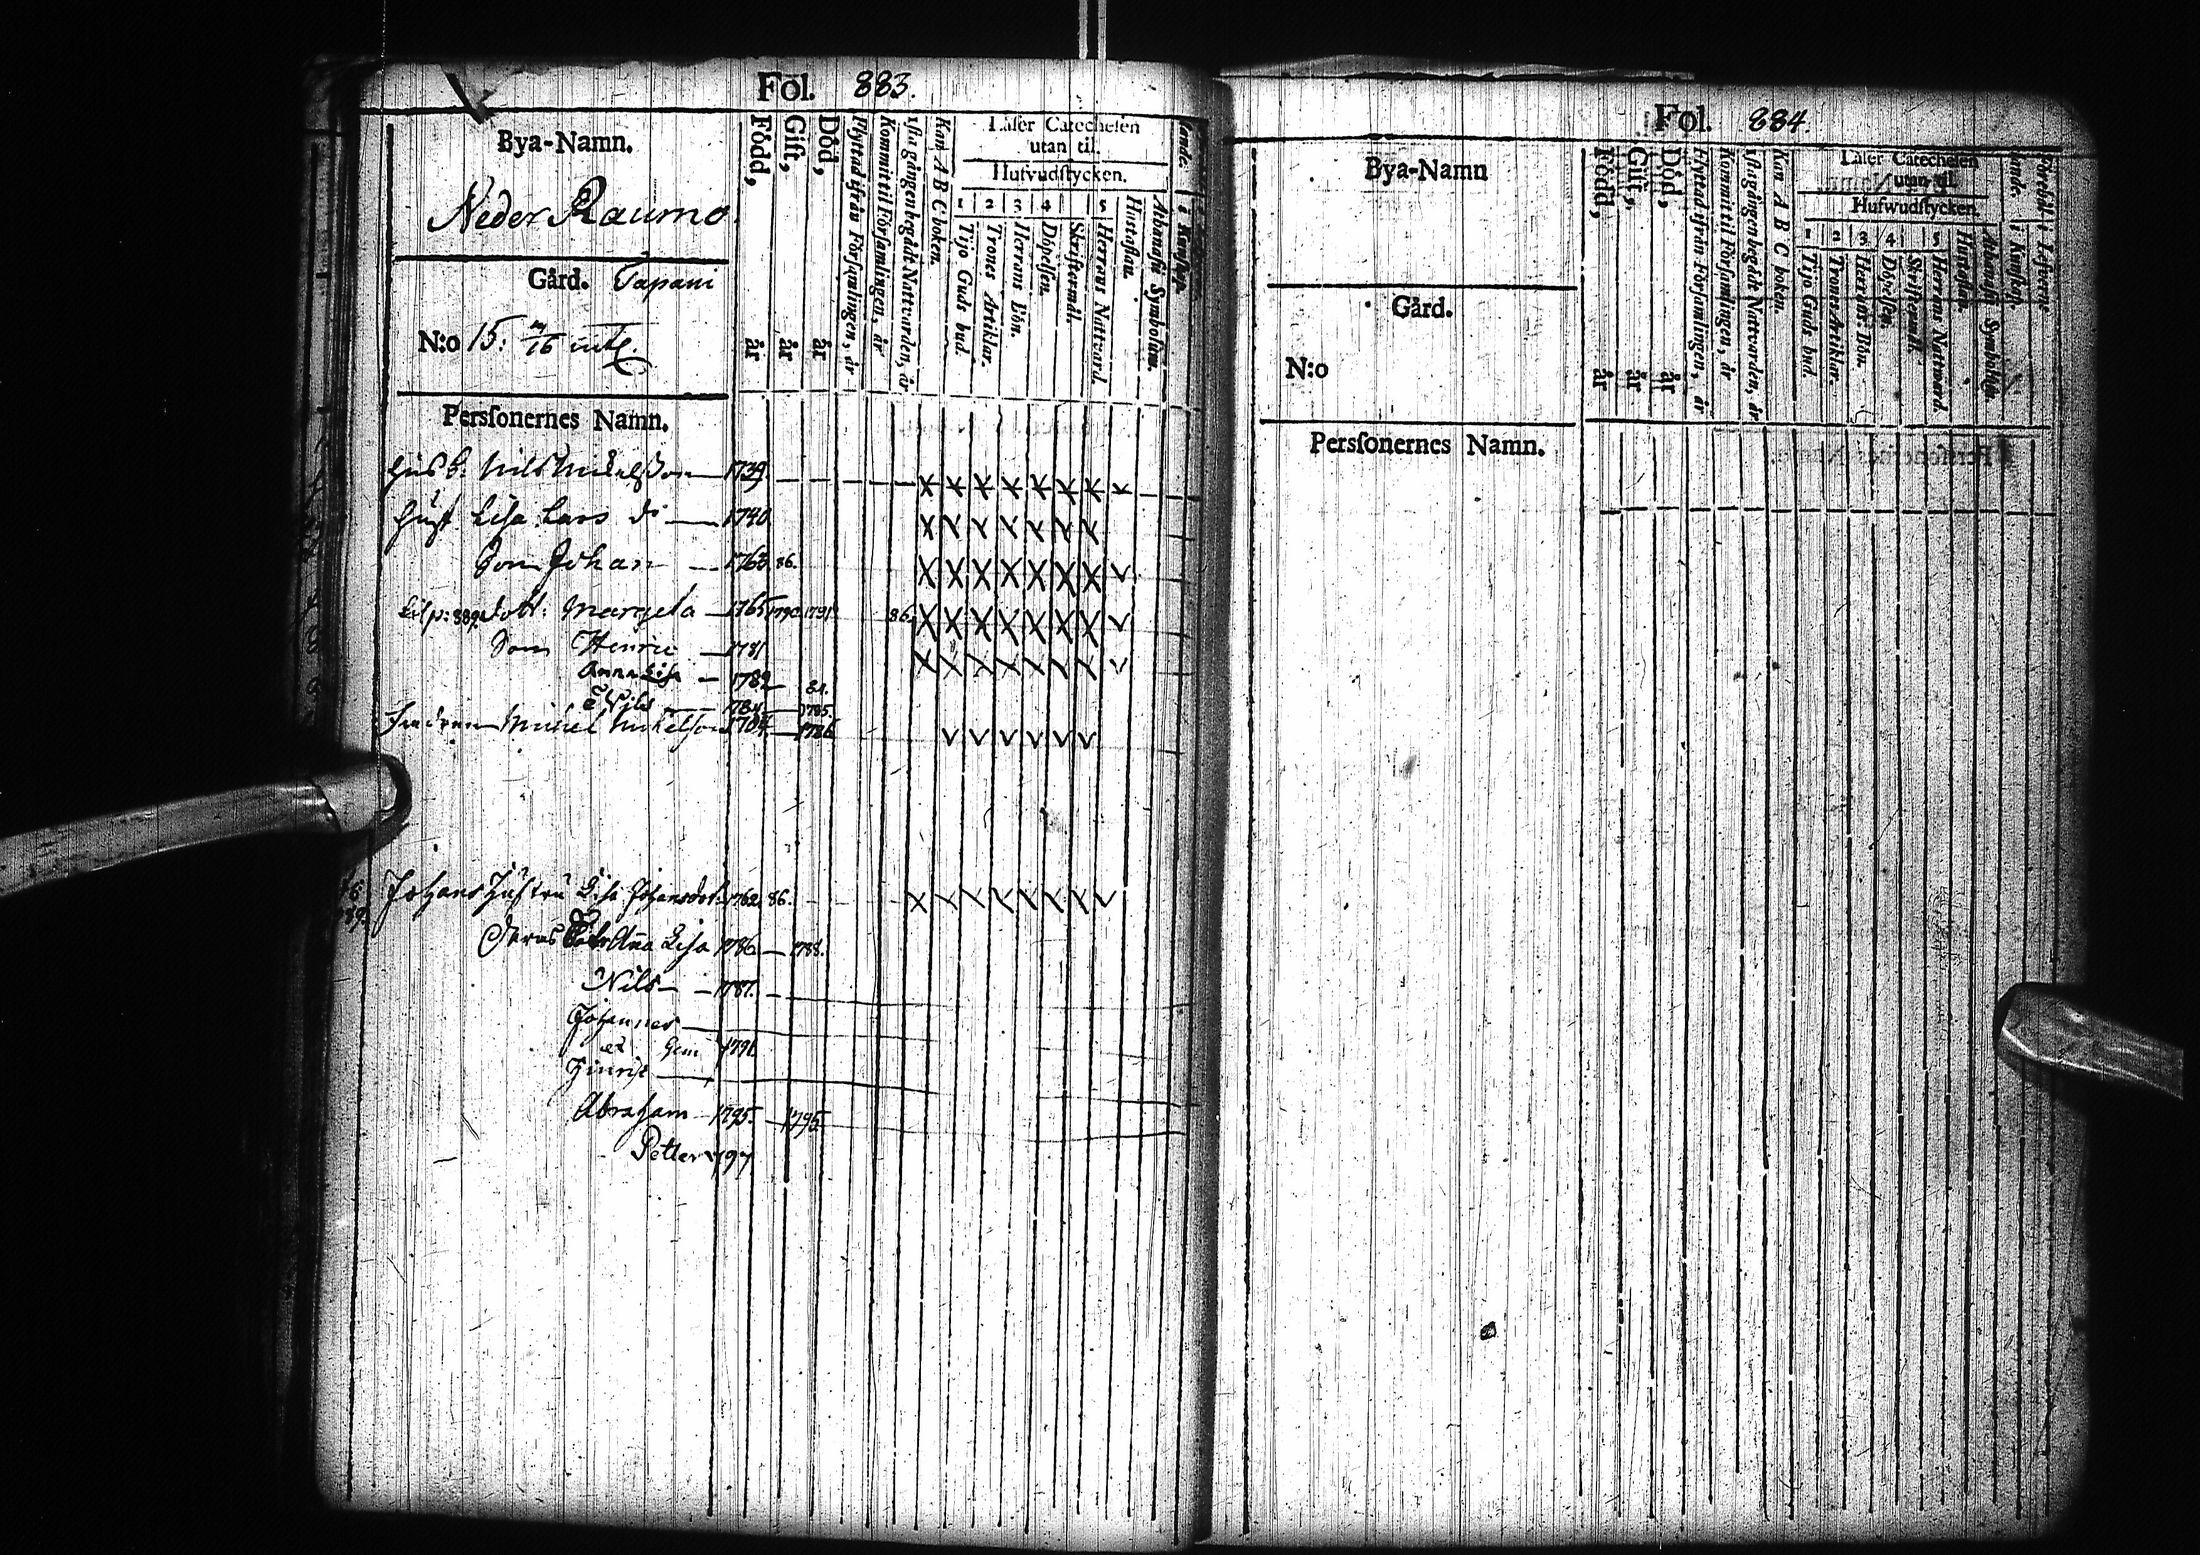 Fol. 883.
Bya-Namn.
Neder Raumo.
Gård. Tapani
N:o 15:
Född, år
Gift, år
Död, år
Flyttad ifrån Församlingen, år
Kommit til Församlingen, år
1sta gången begådt Nattvarden, år
Kan A B C boken.
Läser Catechesen
utan til.
Hufvudstycken.
1 2 3 4 5
Tijo Guds bud.
Trones Artiklar.
Herrans Bön.
Döpelsen.
Skriftermål.
Herrans Nattvard.
Hustaflan.
Athanasii Symbolum.
i Kunskap.
Perssonernes Namn.
Husb: Nils Mickelsson 1739
Hust Lisa Lars do 1740
Son Johan 1763 86.
889. Dott: Margeta 1765 1790 1791 86
Son Henric 1781
Anna Lisa 1782 84.
1784 1785
Michel Mickelson 1704 1786
Johans Hustru Lisa Johansdot: 1762 86.
Deras Anna Lisa 1786 1788.
Nils 1787.
Johannes
et Gem 1791
Hinric
Abraham 1795. 1795.
Petter 1797
Fol. 884.
Bya-Namn
Gård.
N:o
Född, år
Gift, år
Död, år
Flyttad ifrån Församlingen, år
Kommit til Församlingen, år
1sta gången begådt Nattvarden, år
Kan A B C boken.
Läser Catechesen
utan til.
Hufwudstycken.
1 2 3 4 5
Tijo Guds bud.
Trones Artiklar.
Herrans Bön.
Döpelsen.
Skriftermål.
Herrans Nattvard.
Hustaflan.
Athanasii Symbolum.
i Kunskap.
i Lefverne
Perssonernes Namn.